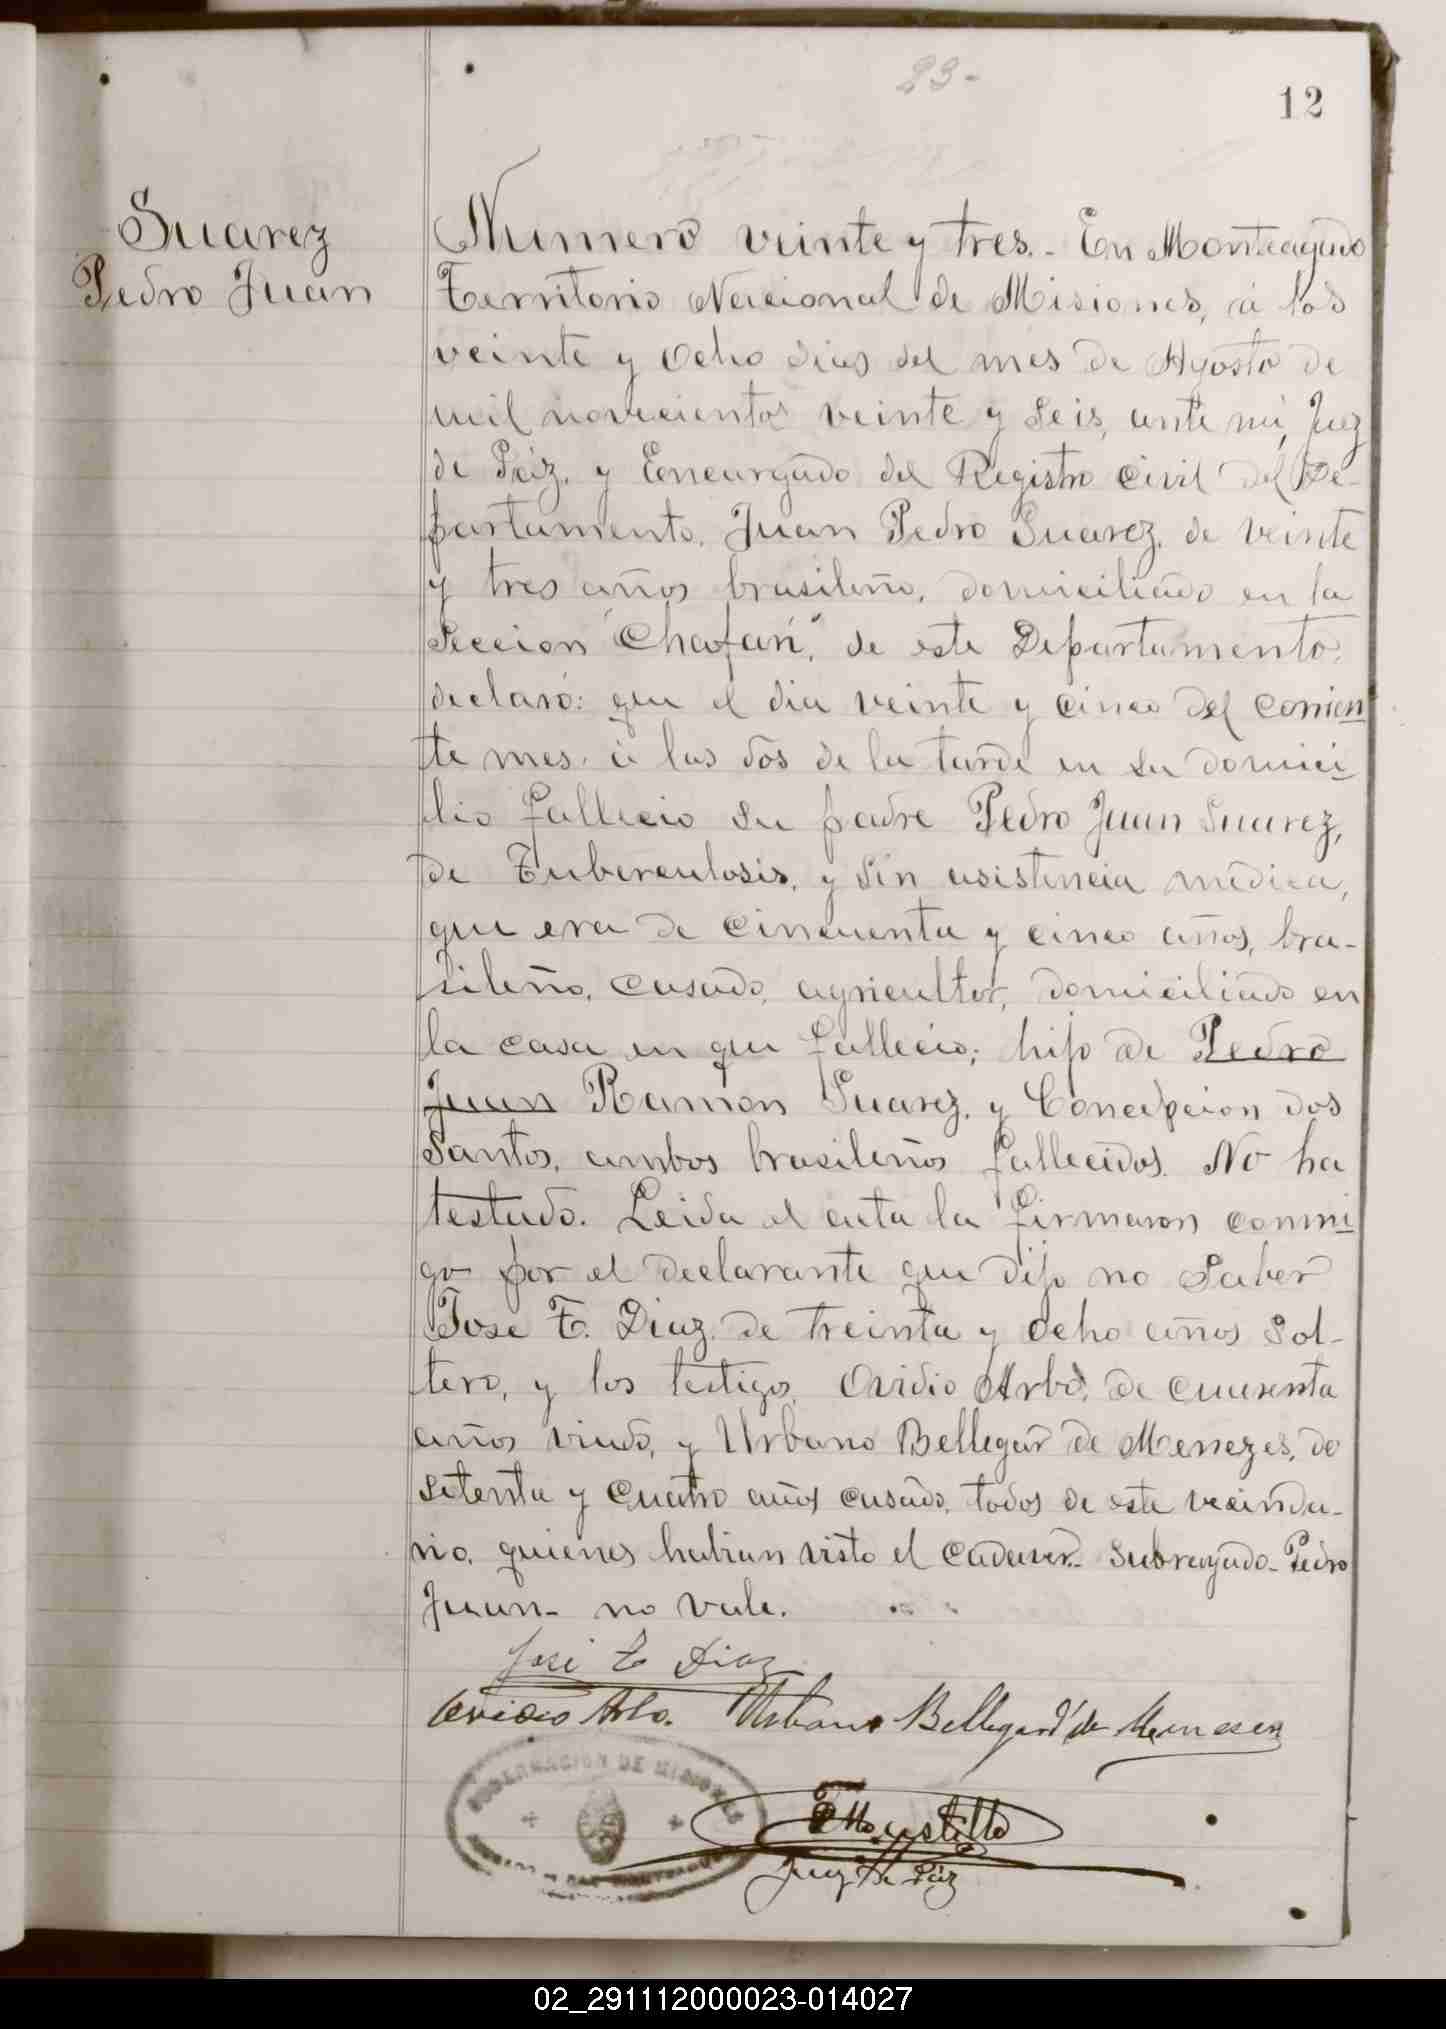 23-
12
Suarez
Pedro Juan
Numero veinte y tres.- En Monteagudo
Territorio Nacional de Misiones, á los
veinte y ocho dias del mes de Agosto de
mil novecientos veinte y seis, ante mi, Juez
de Páz, y Encargado del Registro Civil del De-
partamento, Juan Pedro Suarez, de veinte
y tres años brasileño, domiciliado en la
Seccion "Chafari", de este Departamento,
declaró: que el dia veinte y cinco del corrien
te mes, á las dos de la tarde en su domici
lio fallecio su padre Pedro Juan Suarez,
de Tuberculosis, y sin asistencia médica,
que era de cincuenta y cinco años, bra-
sileño, casado, agricultor, domiciliado en
la casa en que fallecio; hijo de Pedro
Juan Ramon Suarez, y Concepcion dos
Santos, ambos brasileños fallecidos. No ha
testado. Leida el acta la firmaron conmi
go por el declarante que dijo no saber
Jose T. Diaz, de treinta y ocho años sol-
tero, y los testigos, Ovidio Arbo, de cuarenta
años viudo, y Urbano Bellegard de Menezes, de
setenta y cuatro años casado, todos de este vecinda-
rio, quienes habian visto el cadaver.- Subrayado- Pedro
Juan- no vale.
José T Diaz
Ovidio Arbo. Urbano Bellegard de Menezes
GOBERNACION DE MISIONES
Castillo
Juez de Páz
02_291112000023-014027